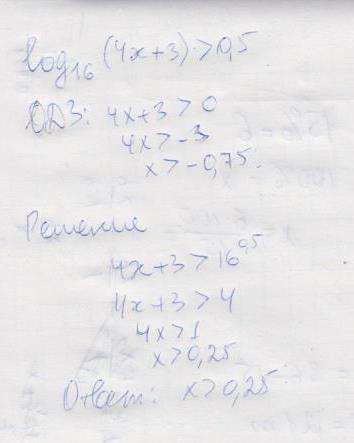 log₁₆ (4x+3) > 0,5
ОДЗ: 4x+3 > 0
4x > -3
x > -0,75.
Решение
4x+3 > 16^0,5
4x+3 > 4
4x > 1
x > 0,25
Ответ: x > 0,25.